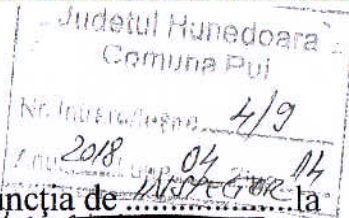 Judetul Hunedoara
Comuna Pui
Nr. Intrare/Ieşire 4/9
Anul 2018 Luna 04 Ziua 14
ncția de INSPECTOR la